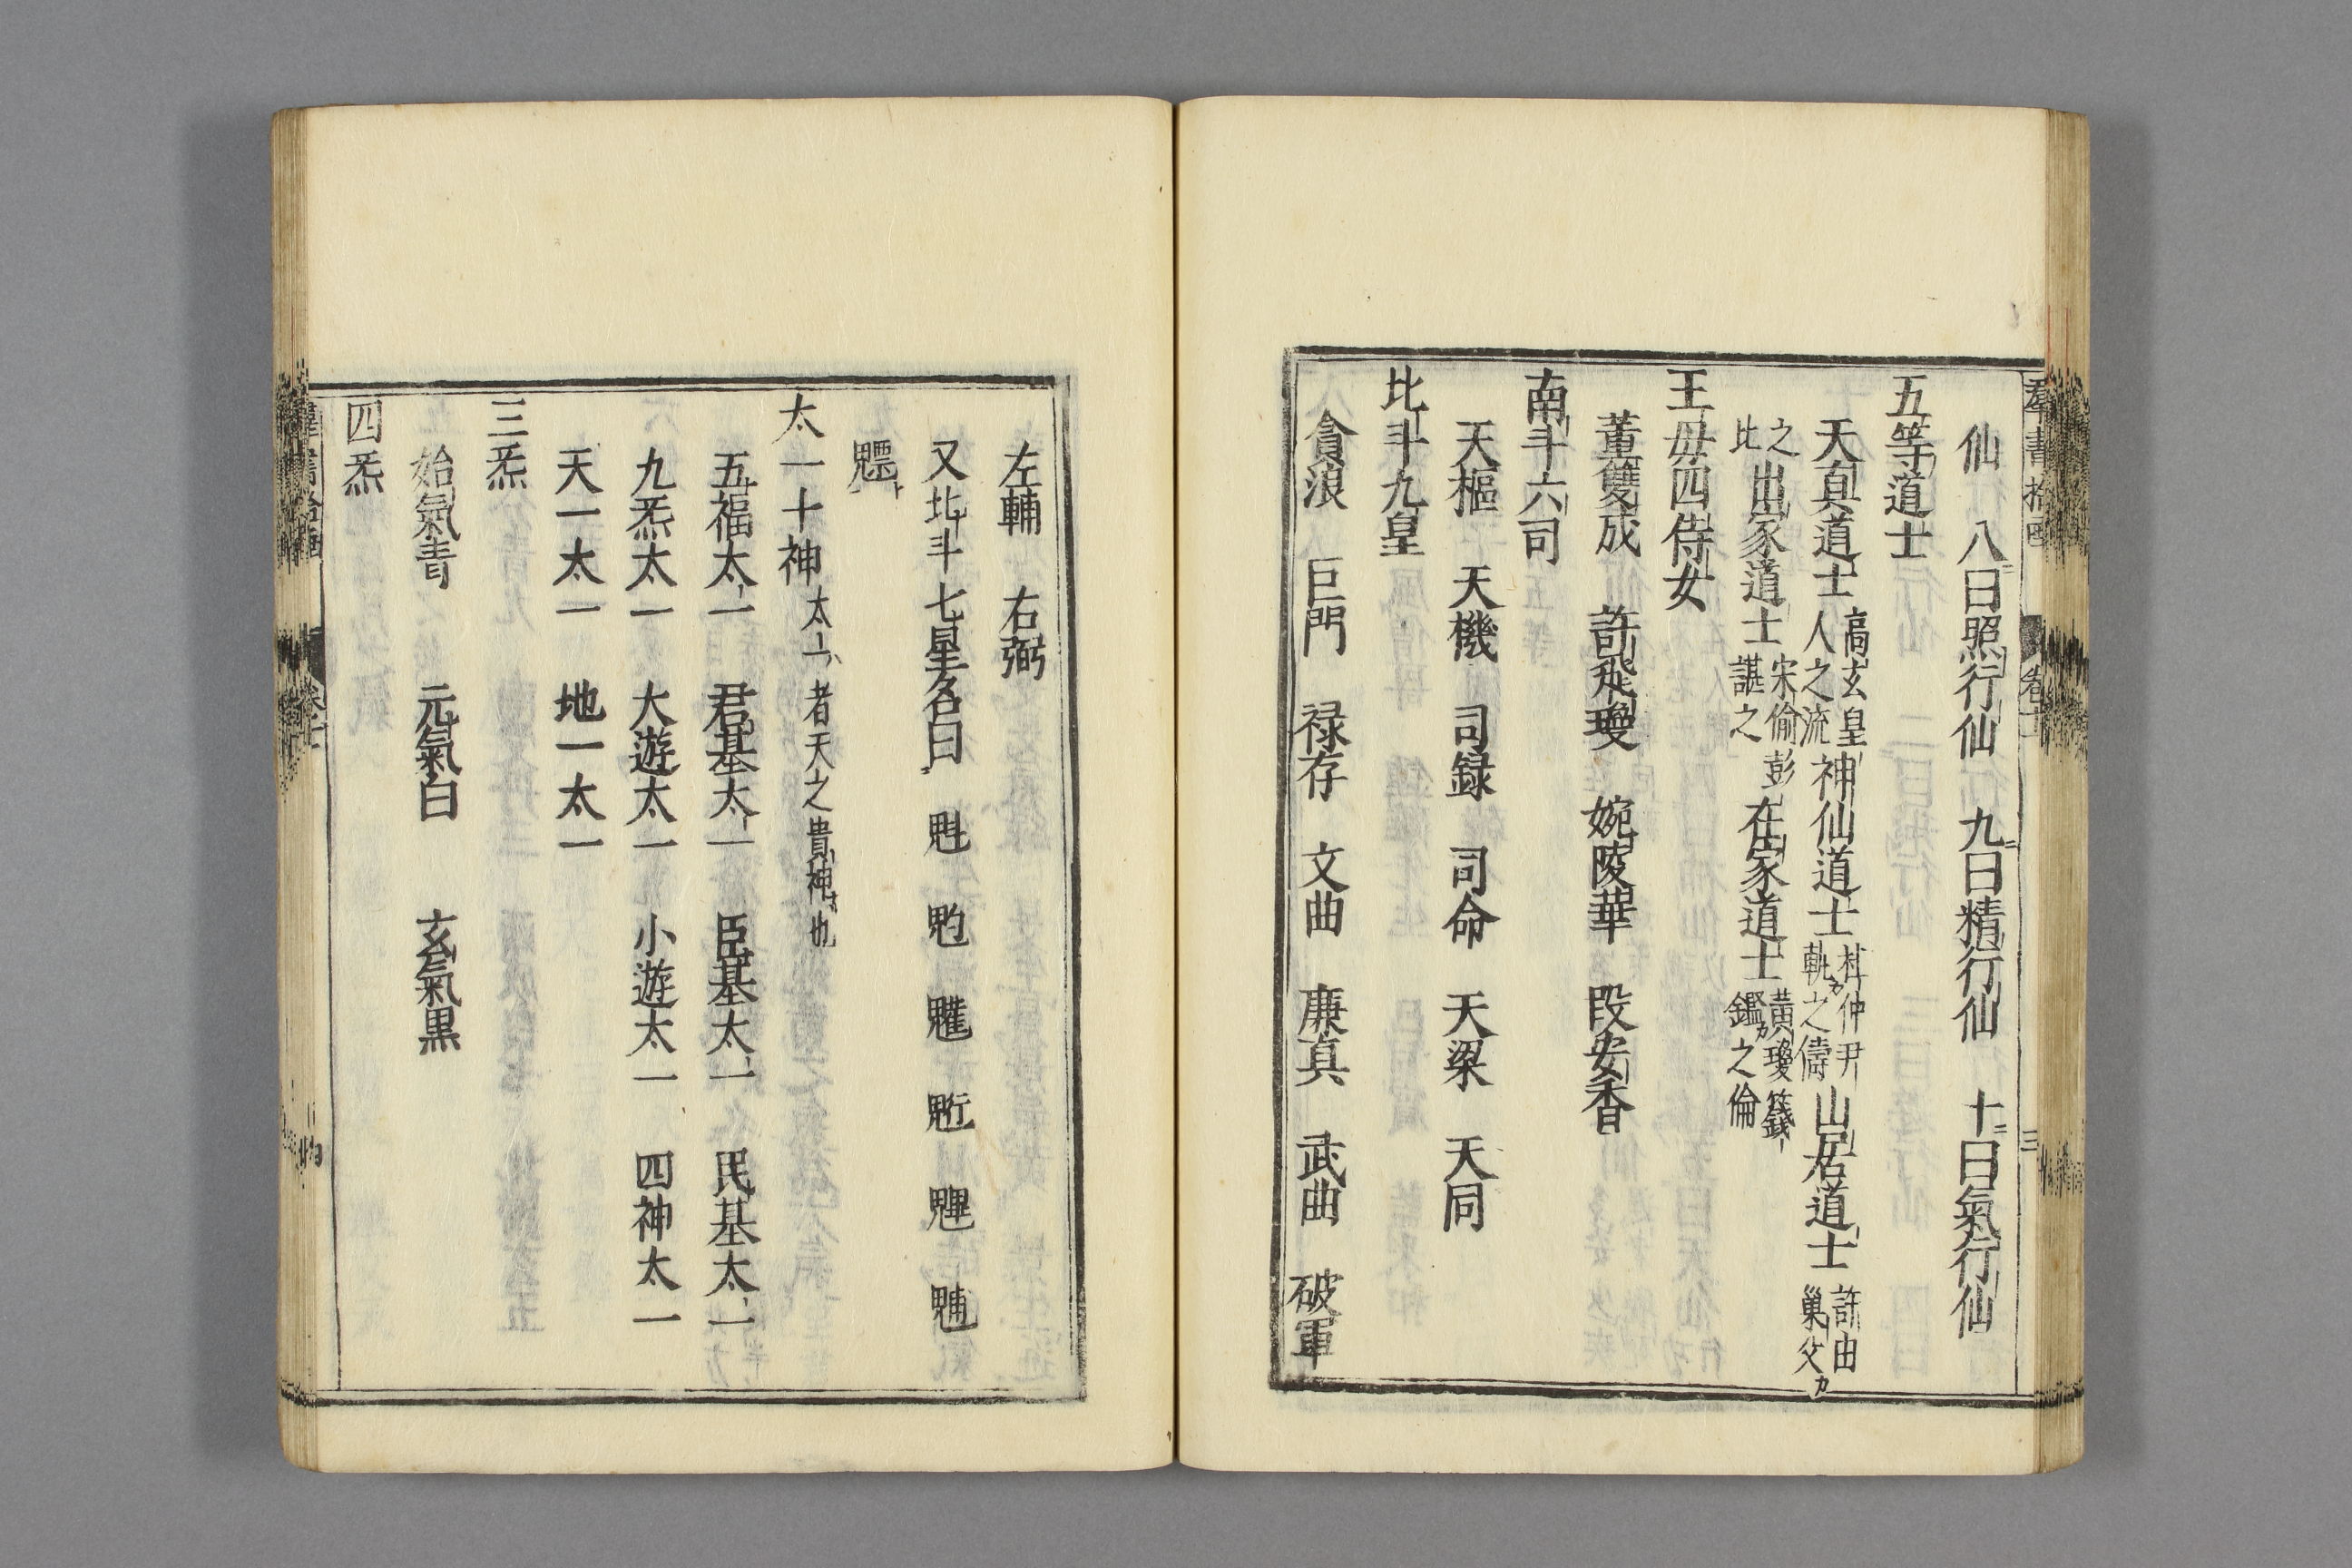 仙　八曰照行仙　九曰精行仙　十曰氣行仙
五等道士
天真道士　高玄皇人之流　神仙道士　杜仲尹軌之儔　山居道士　許由巢父
之比　出家道士　宋倫彭諶之　在家道士　黃瓊籛鑑之倫
王母四侍女
董雙成　許飛瓊　婉陵華　段安香
南斗六司
天樞　天機　司録　司命　天梁　天同
北斗九皇
貪浪　巨門　禄存　文曲　廉真　武曲　破軍
左輔　右弼
又北斗七星名曰　魁　䰢　魓　䰡　魒
太一十神　太一者天之貴神也
五福太一　君基太一　臣基太一　民基太一
九炁太一　大遊太一　小遊太一　四神太一
天一太一　地一太一
三炁
始氣青　元氣白　玄氣黒
四炁